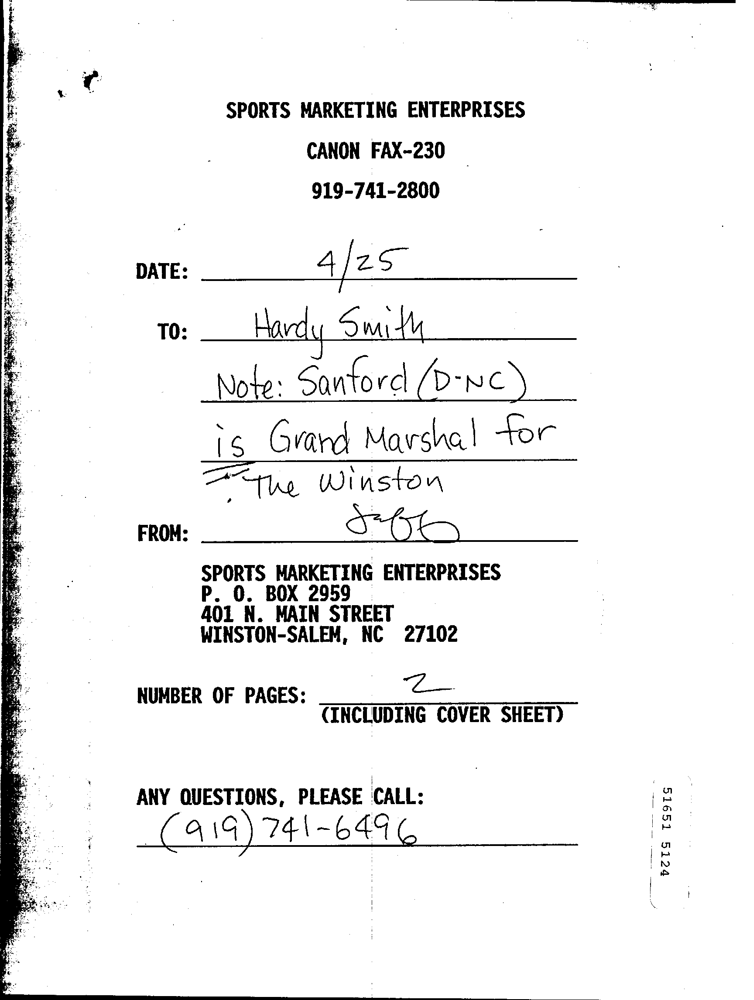 SPORTS MARKETING ENTERPRISES
CANON FAX-230
919-741-2800
DATE: 4/25
TO: Hardy Smith
Note: Sanford (D-NC)
is Grand Marshal for
The Winston
FROM:
SPORTS MARKETING ENTERPRISES
P. O. BOX 2959
401 N. MAIN STREET
WINSTON-SALEM, NC 27102
NUMBER OF PAGES: 2
(INCLUDING COVER SHEET)
ANY QUESTIONS, PLEASE CALL:
(919) 741-6496
51651 5124